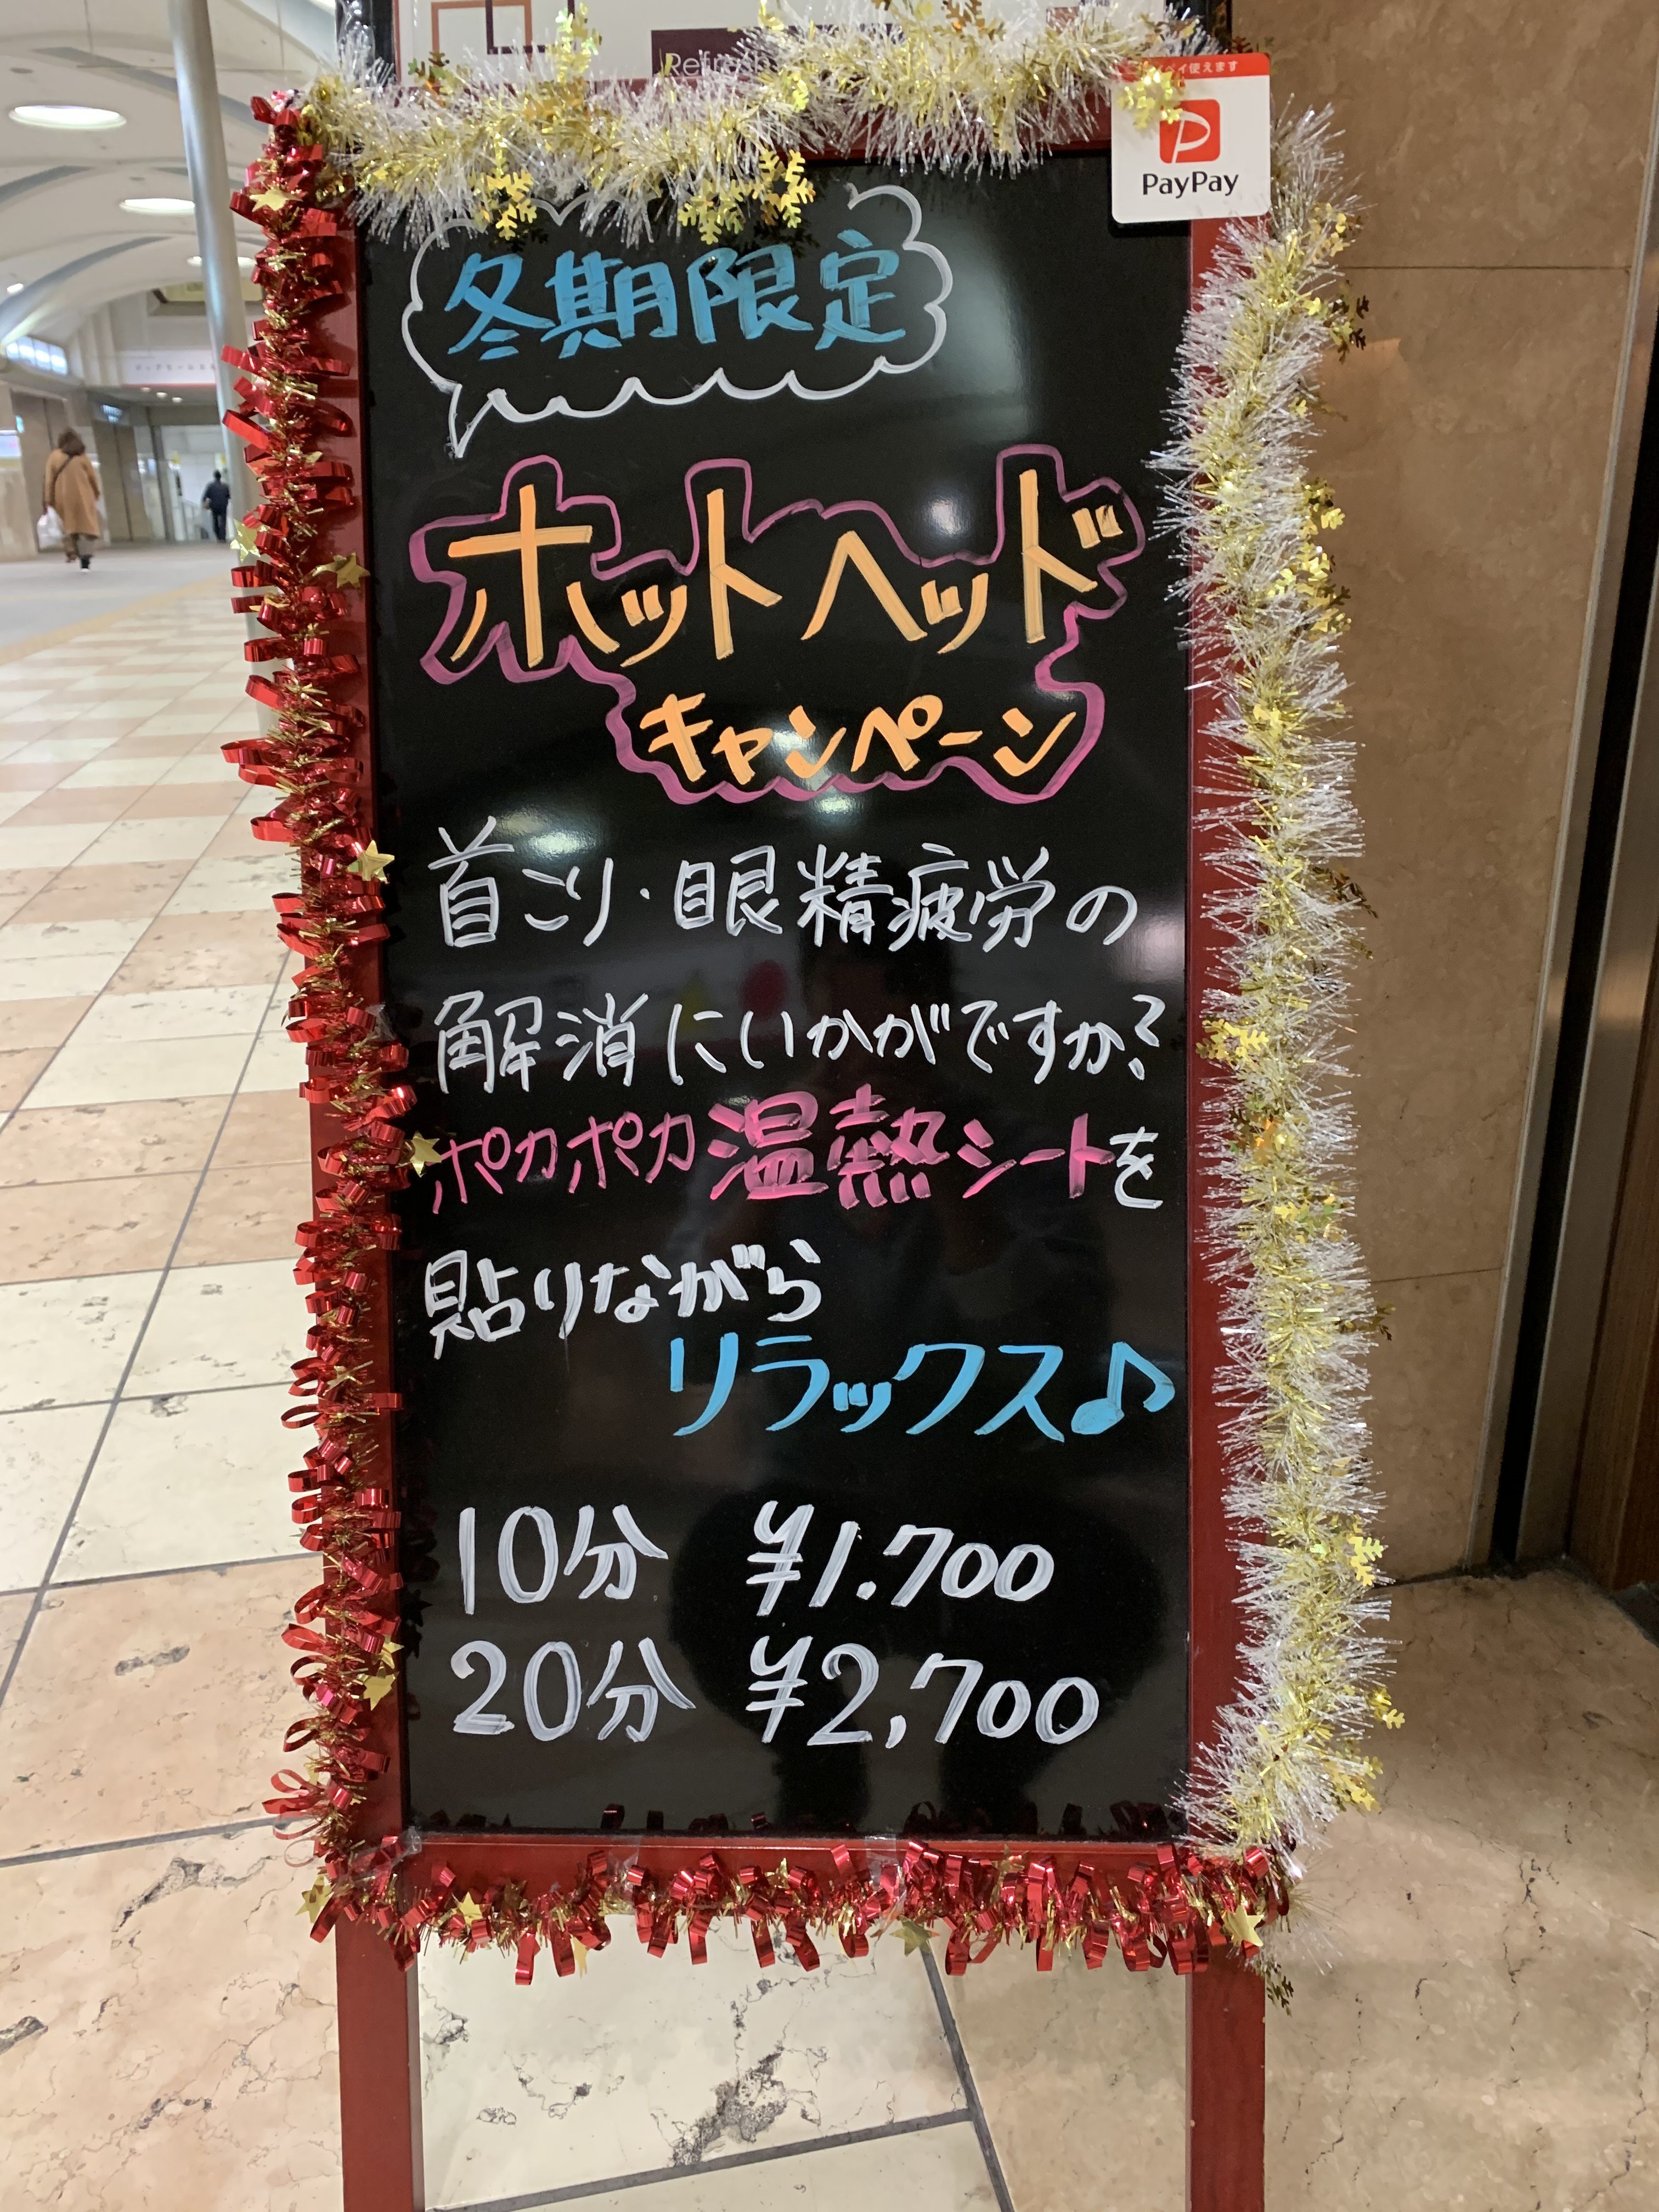 Refresh
ペイ使えます
PayPay
冬期限定
ホットヘッド
キャンペーン
首こり・眼精疲労の
解消にいかがですか?
ポカポカ温熱シートを
貼りながら
リラックス♪
10分 ¥1.700
20分 ¥2,700